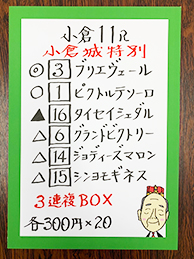 小倉11R
小倉城特別
◎ 3 ブリエヴェール
○ 1 ピクトルテソーロ
▲ 16 タイセイシェダル
△ 6 グランドビクトリー
△ 14 ジョディーズマロン
△ 15 シンヨモギネス
3連複BOX
各300円×20